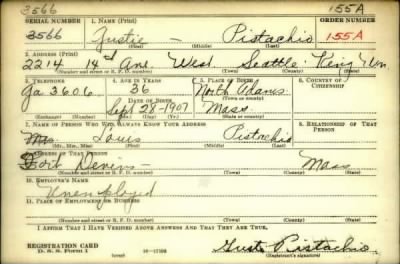 3566 155A
SERIAL NUMBER 1. NAME (Print) ORDER NUMBER
3566 Justie — Pistachio 155A
(First) (Middle) (Last)
2. ADDRESS (Print)
2214 14th Ave West Seattle King Wn
(Number and street or R. F. D. number) (Town) (County) (State)
3. TELEPHONE 4. AGE IN YEARS 5. PLACE OF BIRTH 6. COUNTRY OF CITIZENSHIP
Ga 3606 36 North Adams
DATE OF BIRTH (Town or county)
Sept 28-1907 Mass
(Exchange) (No.) (Mo.) (Day) (Yr.) (State or country)
7. NAME OF PERSON WHO WILL ALWAYS KNOW YOUR ADDRESS 8. RELATIONSHIP OF THAT PERSON
Louis Pistachio
(Mr., Mrs., Miss) (First) (Middle) (Last)
9. ADDRESS OF THAT PERSON
Fort Devens — Mass
(Number and street or R. F. D. number) (Town) (County) (State)
10. EMPLOYER'S NAME
Unemployed
11. PLACE OF EMPLOYMENT OR BUSINESS
(Number and street or R. F. D. number) (Town) (County) (State)
I AFFIRM THAT I HAVE VERIFIED ABOVE ANSWERS AND THAT THEY ARE TRUE.
REGISTRATION CARD
D. S. S. Form 1 (over) Pistachio
(Registrant's signature)